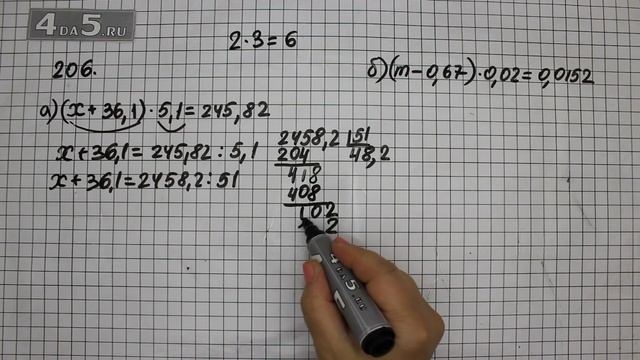 4DA5.RU
2·3=6
206.
а)(x+36,1)·5,1=245,82
x+36,1=245,82:5,1
x+36,1=2458,2:51
2458,2 51
204 48,2
418
408
102
2
б)(m-0,67)·0,02=0,0152
4DA5.RU